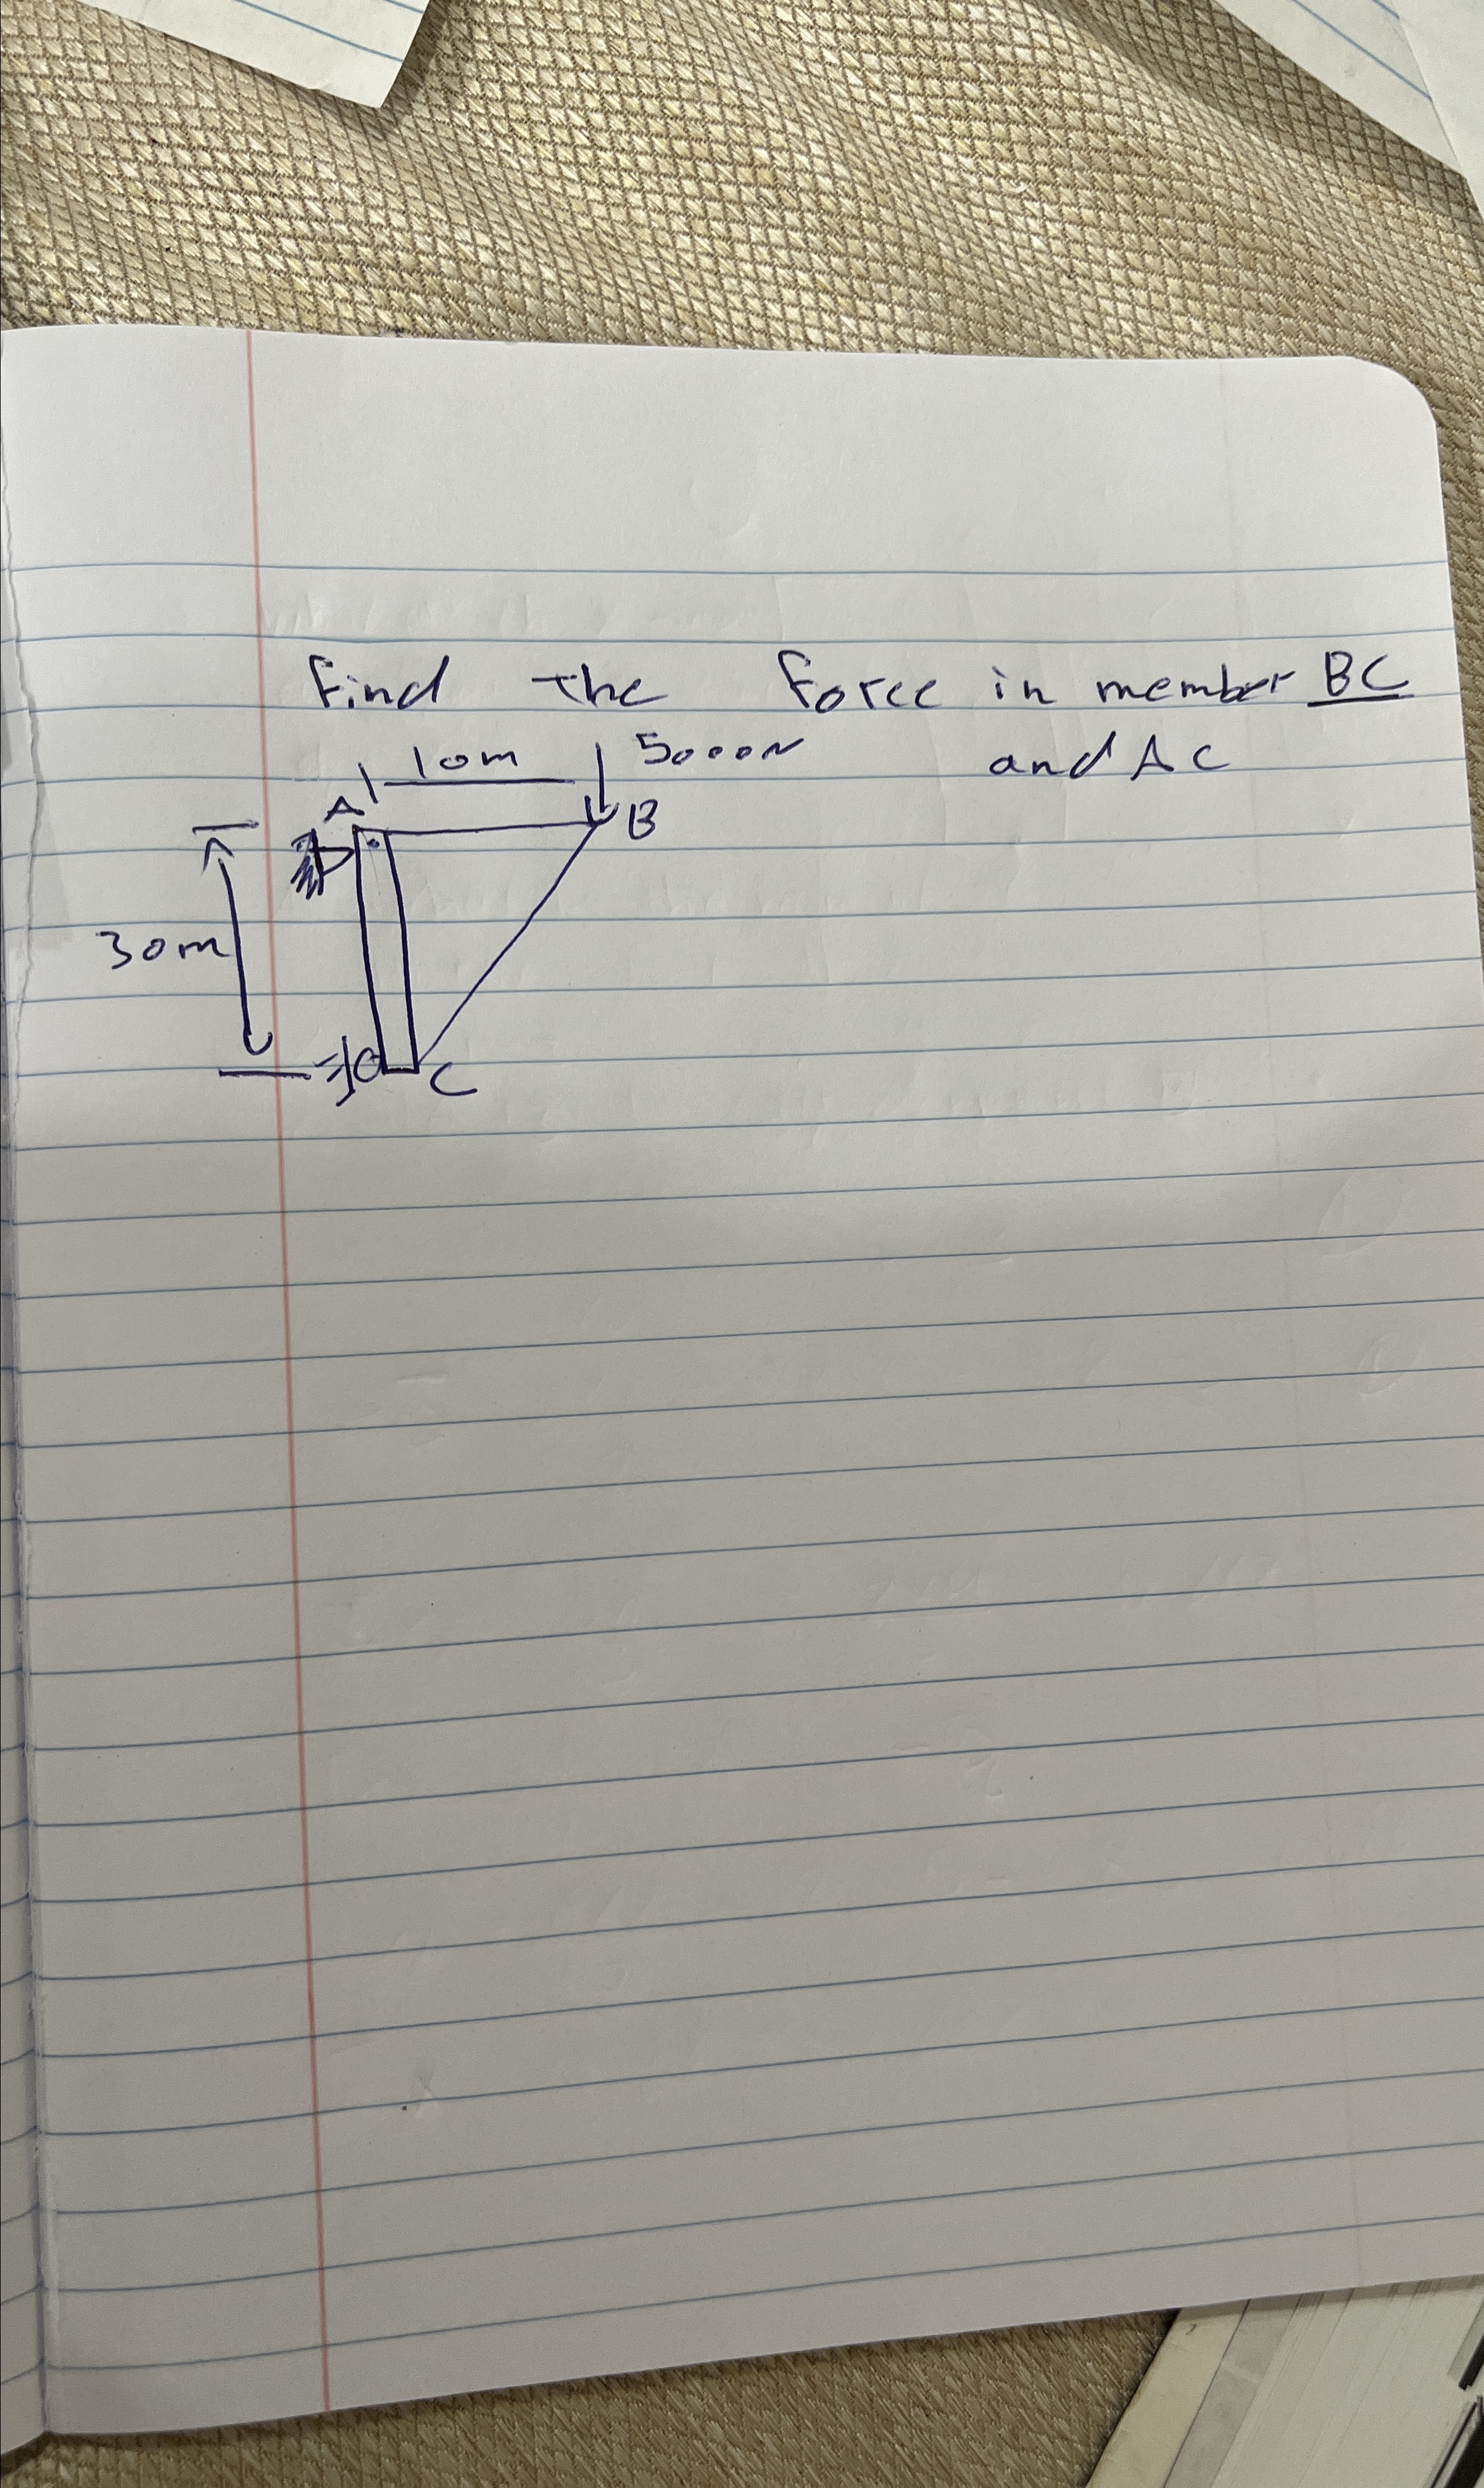 Find the Force in member BC
and AC
10m 5000N
A B
30m
C